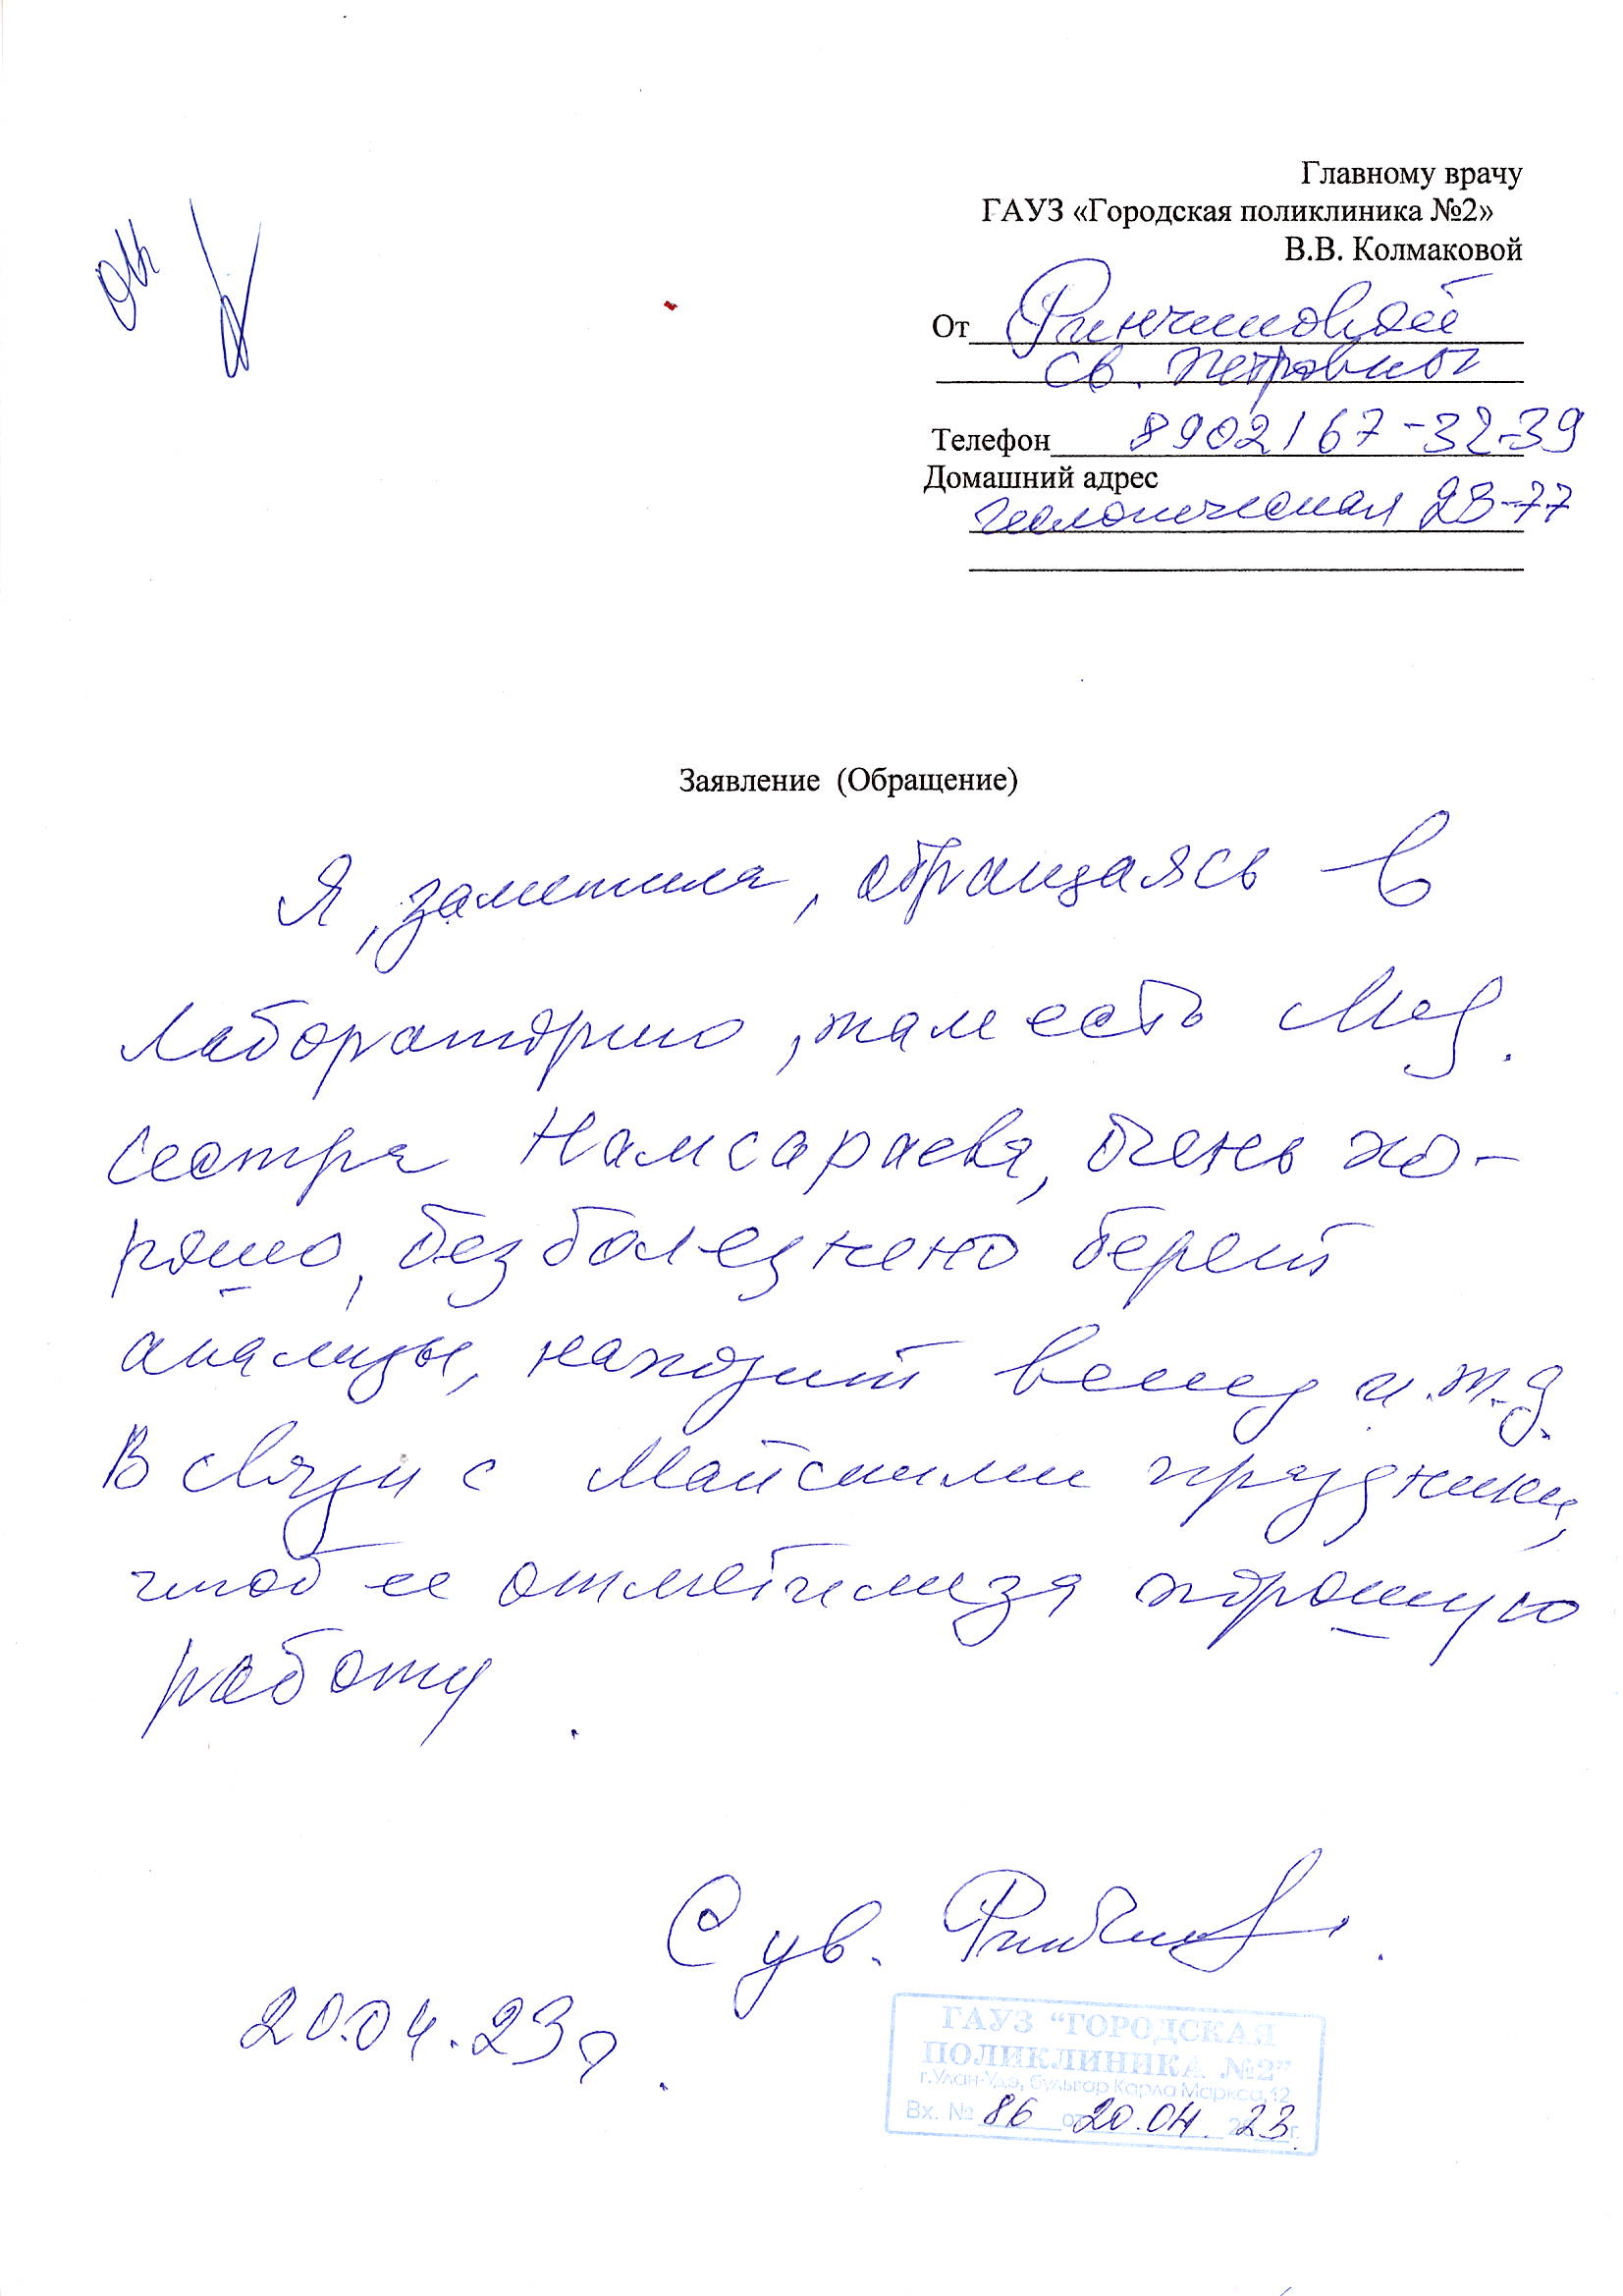 Главному врачу
ГАУЗ «Городская поликлиника №2»
В.В. Колмаковой
От Ринчиновой
Св. Петровны
Телефон 8902167-32-39
Домашний адрес
23-77
Заявление (Обращение)
Я, заметила, обращаясь в
Лабораторию, там есть Мед.
сестра Намсараева, очень хо-
рошо, безболезнено берет
анализы, находит вены и т.д.
В связи с Майскими праздники,
чтоб ее отметили за хорошую
работу.
С ув. Ринчинова.
20.04.23г.
ГАУЗ "ГОРОДСКАЯ
ПОЛИКЛИНИКА №2"
г.Улан-Удэ, бульвар Карла Маркса,12
Вх. № 86 от 20.04. 2023г.